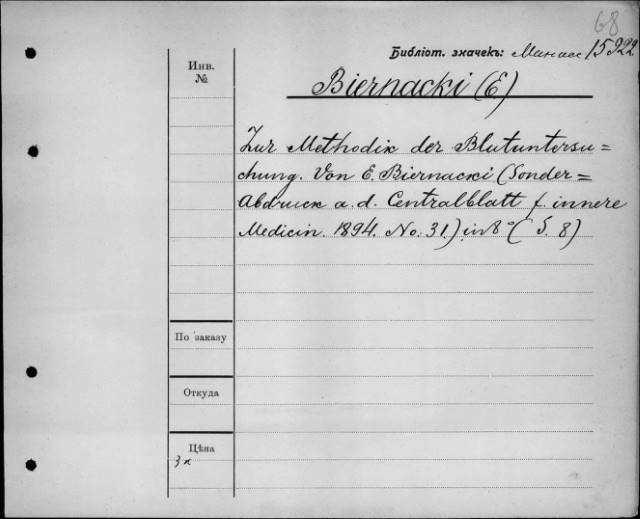 68
Библіот. значекъ: Манасс 15922
Инв.
№
Biernacki (E)
Zur Methodik der Blutuntersu=
chung. Von E. Biernacki (Sonder=
Abdruck a. d. Centralblatt f. innere
Medicin. 1894. No. 31.) in 8° (S. 8)
По заказу
Откуда
Цѣна
3 к